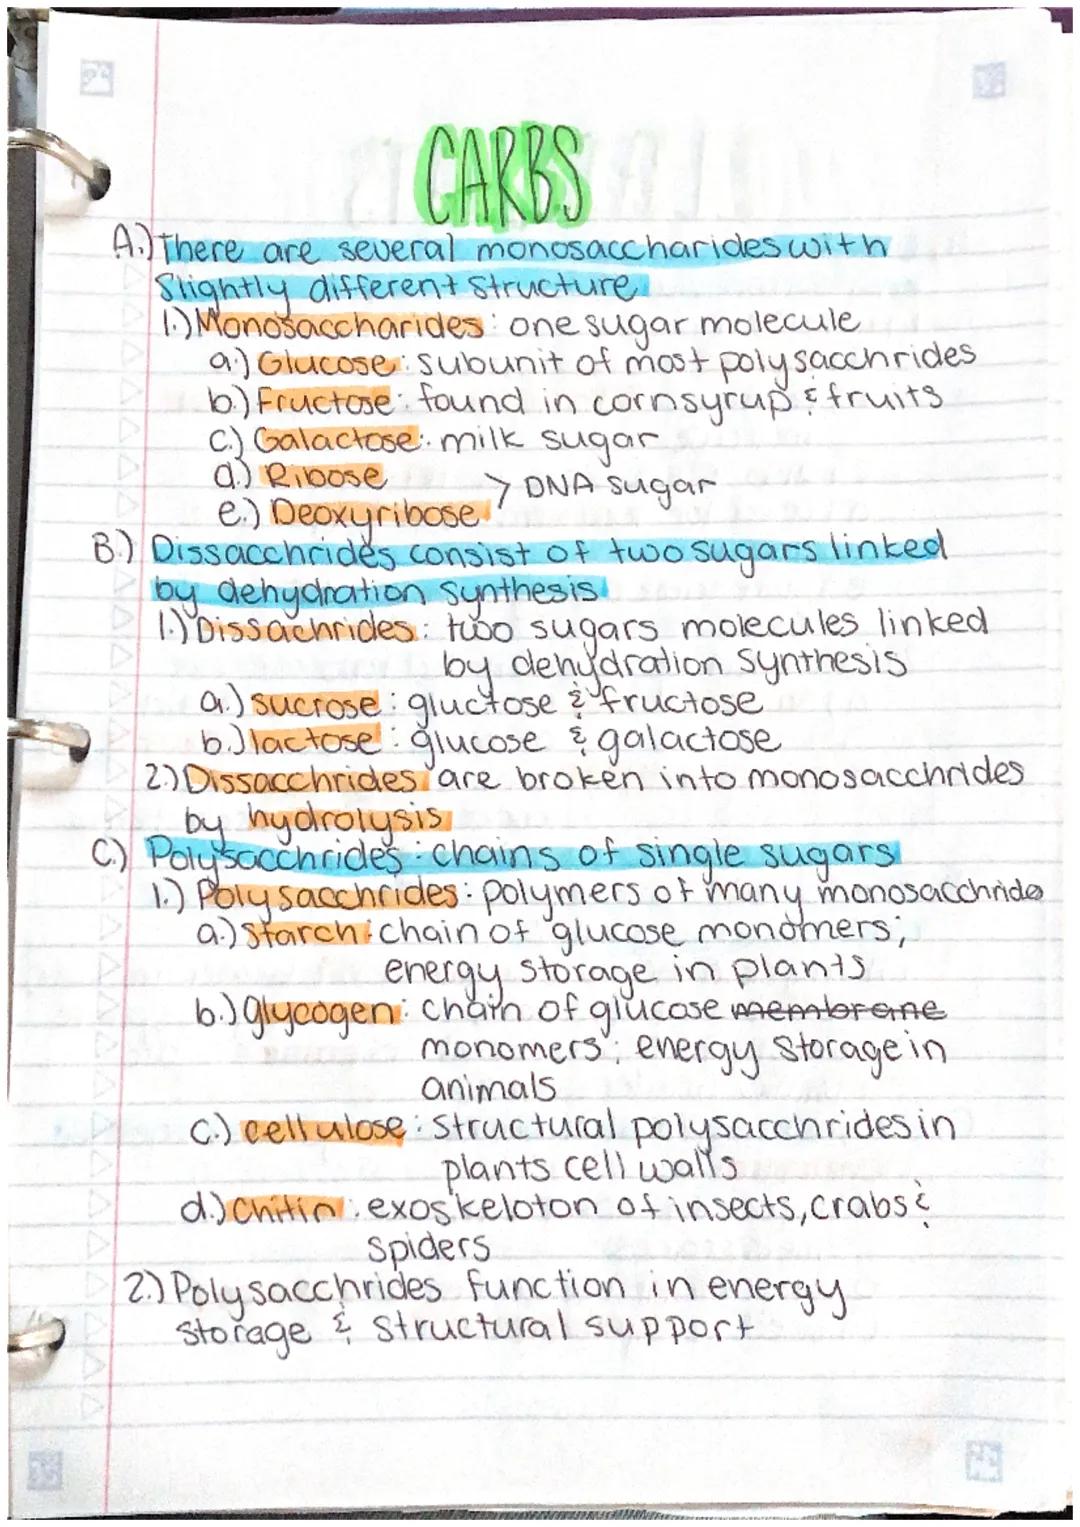 CARBS
A.) There are several monosaccharides with
Slightly different structure
1.) Monosaccharides: one sugar molecule
a.) Glucose: subunit of most polysacchrides
b.) Fructose: found in cornsyrup & fruits
c.) Galactose: milk sugar
d.) Ribose
> DNA sugar
e.) Deoxyribose
B.) Dissacchrides consist of two sugars linked
by dehydration synthesis
1.) Dissachrides: two sugars molecules linked
by dehydration synthesis
a.) sucrose: gluctose & fructose
b.) lactose: glucose & galactose
2.) Dissacchrides are broken into monosacchrides
by hydrolysis
C.) Polysacchrides: chains of single sugars
1.) Polysacchrides: polymers of many monosacchride
a.) starch: chain of glucose monomers;
energy storage in plants
b.) glycogen: chain of glucose membrane
monomers; energy storage in
animals
c.) cellulose: structural polysacchrides in
plants cell walls
d.) chitin: exoskeloton of insects, crabs &
spiders
2.) Polysacchrides function in energy
storage & structural support